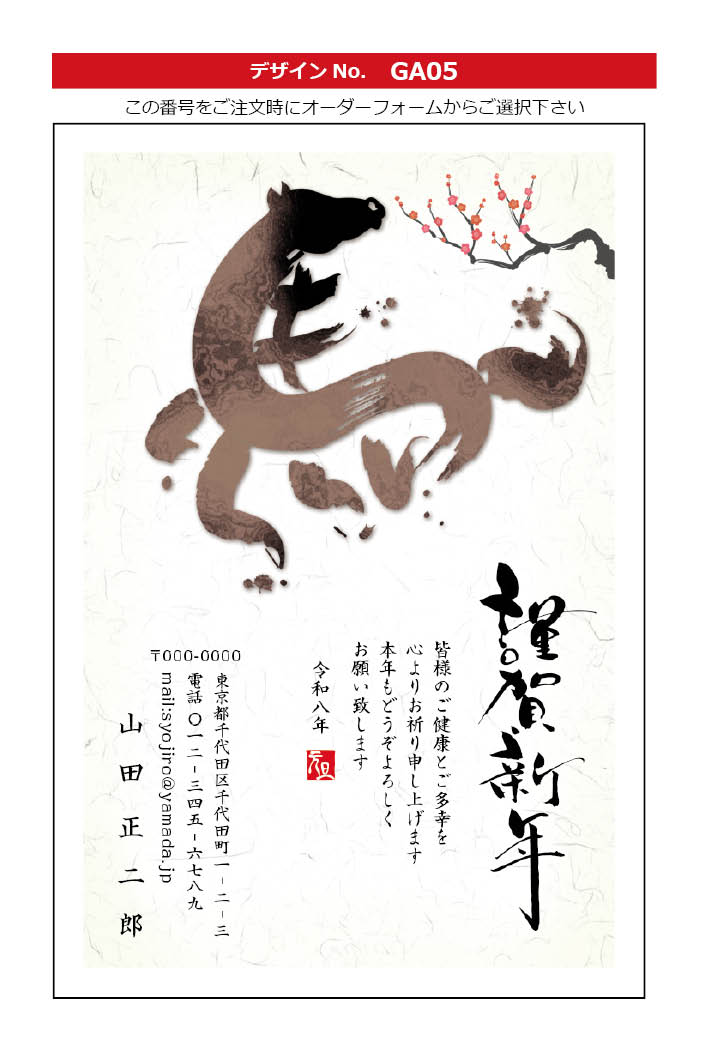 デザインNo. GA05
この番号をご注文時にオーダーフォームからご選択下さい
謹賀新年
皆様のご健康とご多幸を
心よりお祈り申し上げます
本年もどうぞよろしく
お願い致します
令和八年
元旦
〒000-0000
東京都千代田区千代田町一-二-三
電話 〇一二-三四五-六七八九
mail:syojiro@yamada.jp
山田正二郎